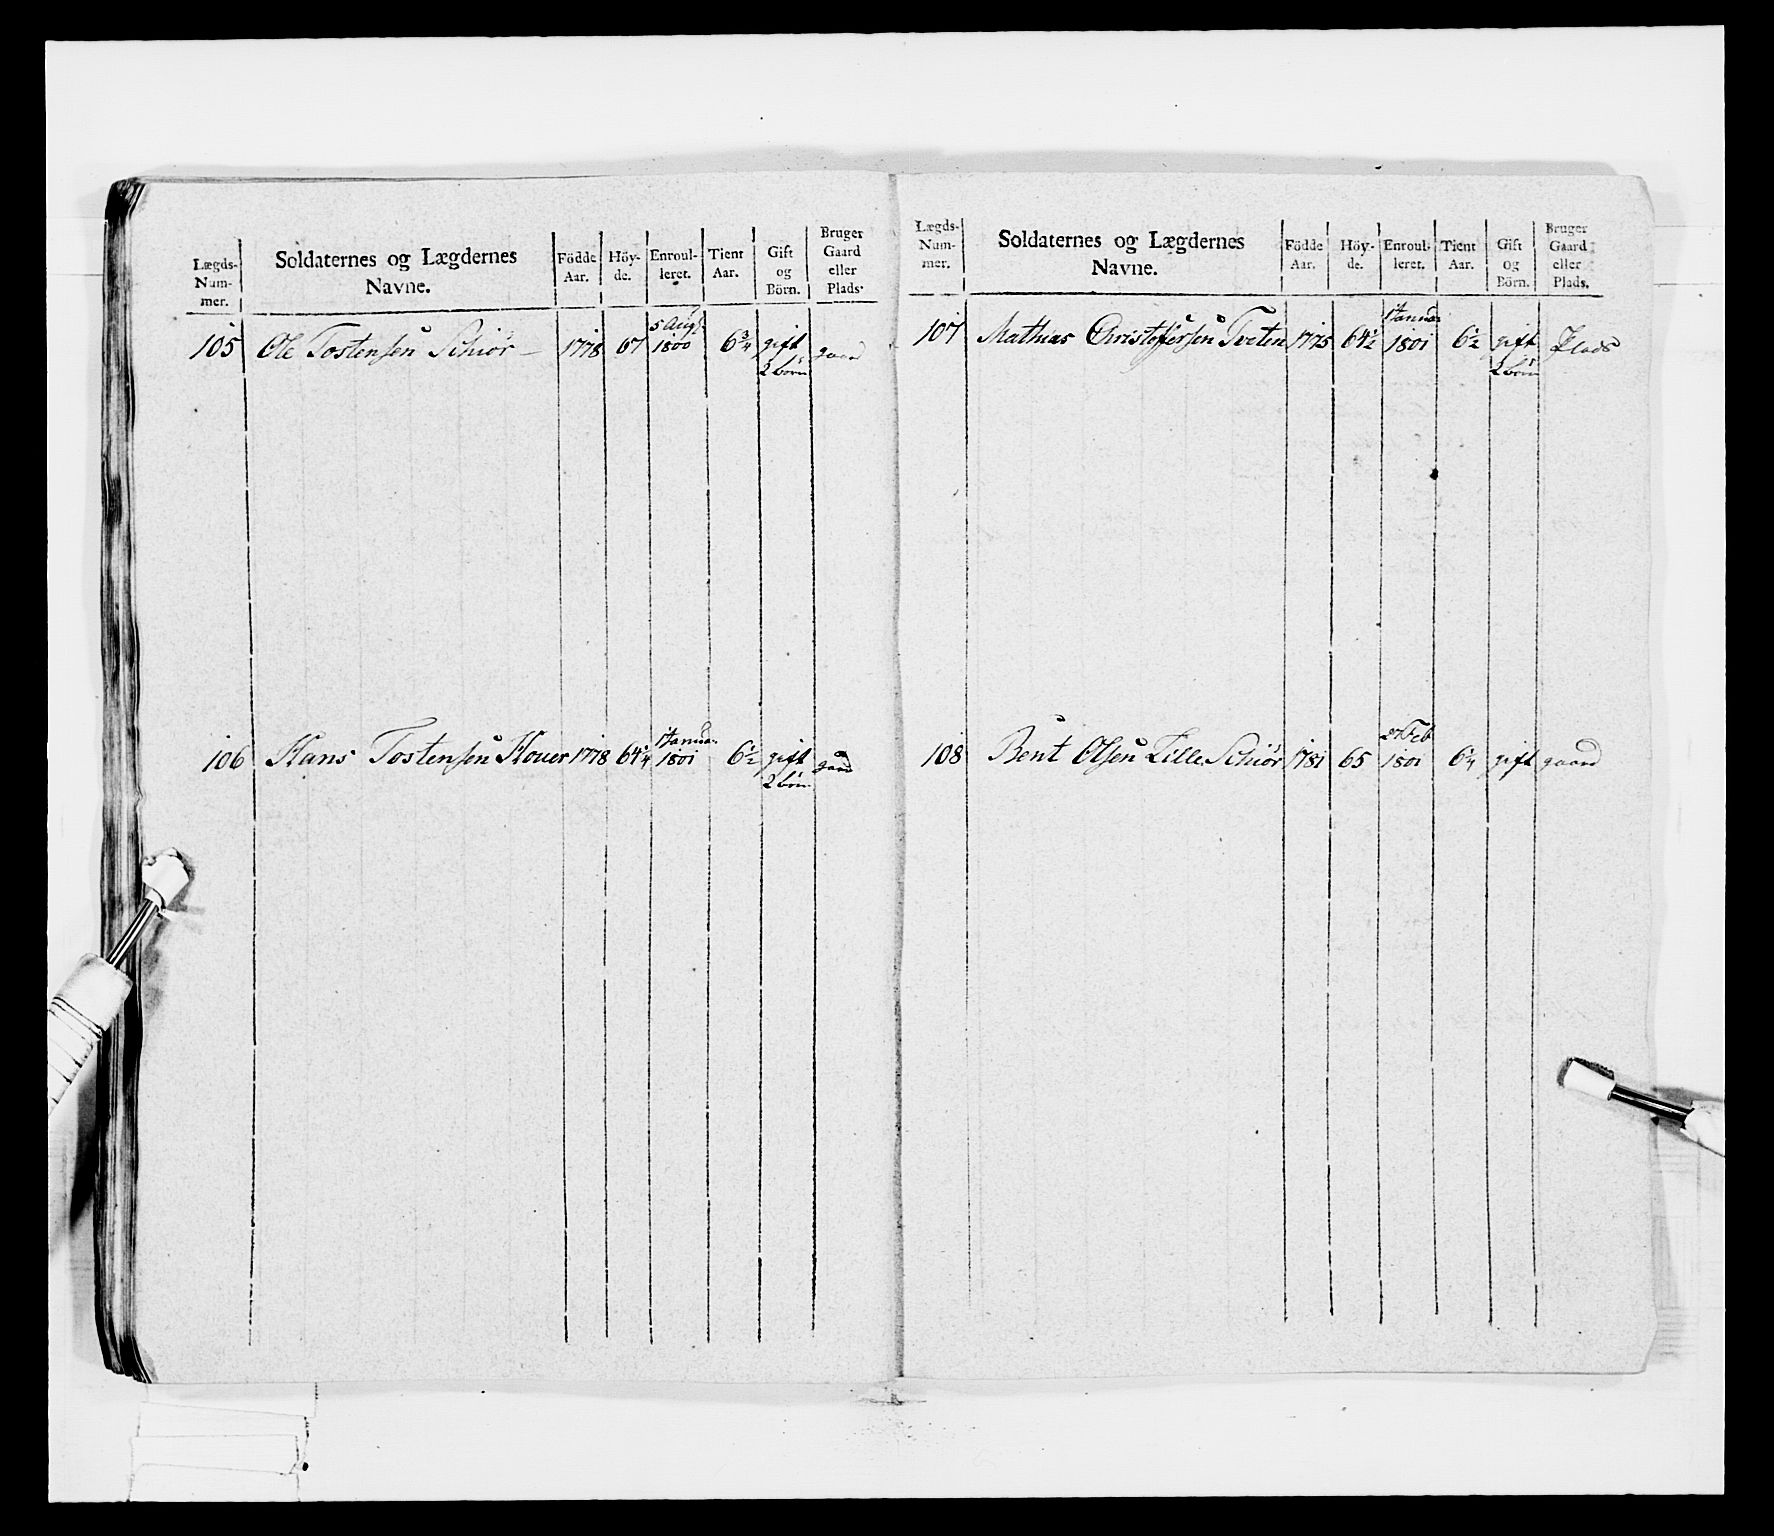 Lægds-Num-mer. Soldaternes og Lægdernes Navne. Födde Aar. Höy-de. Enroul-leret. Tient Aar. Gift og Börn. Bruger Gaard eller Plads.
5 Aug:
105 Ole Tostensen Schiör 1778 67 1800 6 3/4 gift gaard
2 börn
1 Januar
106 Hans Tostensen 1778 64 1/4 1801 6 1/2 gift gaard
2 börn
Lægds-Num-mer. Soldaternes og Lægdernes Navne. Födde Aar. Höy-de. Enroul-leret. Tient Aar. Gift og Börn. Bruger Gaard eller Plads.
1 Januar
107 Mathias Christofersen Tveten 1775 64 1/2 1801 6 1/2 gift Plads
2 börn
27 Feb
108 Bent Olsen Lille Schiör 1781 65 1801 6 1/4 gift gaard